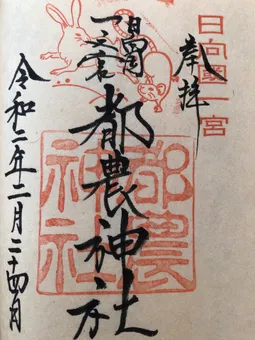 日向國一宮
奉拝
日向国
一之宮
都農神社
都農神社
令和二年二月二十四日